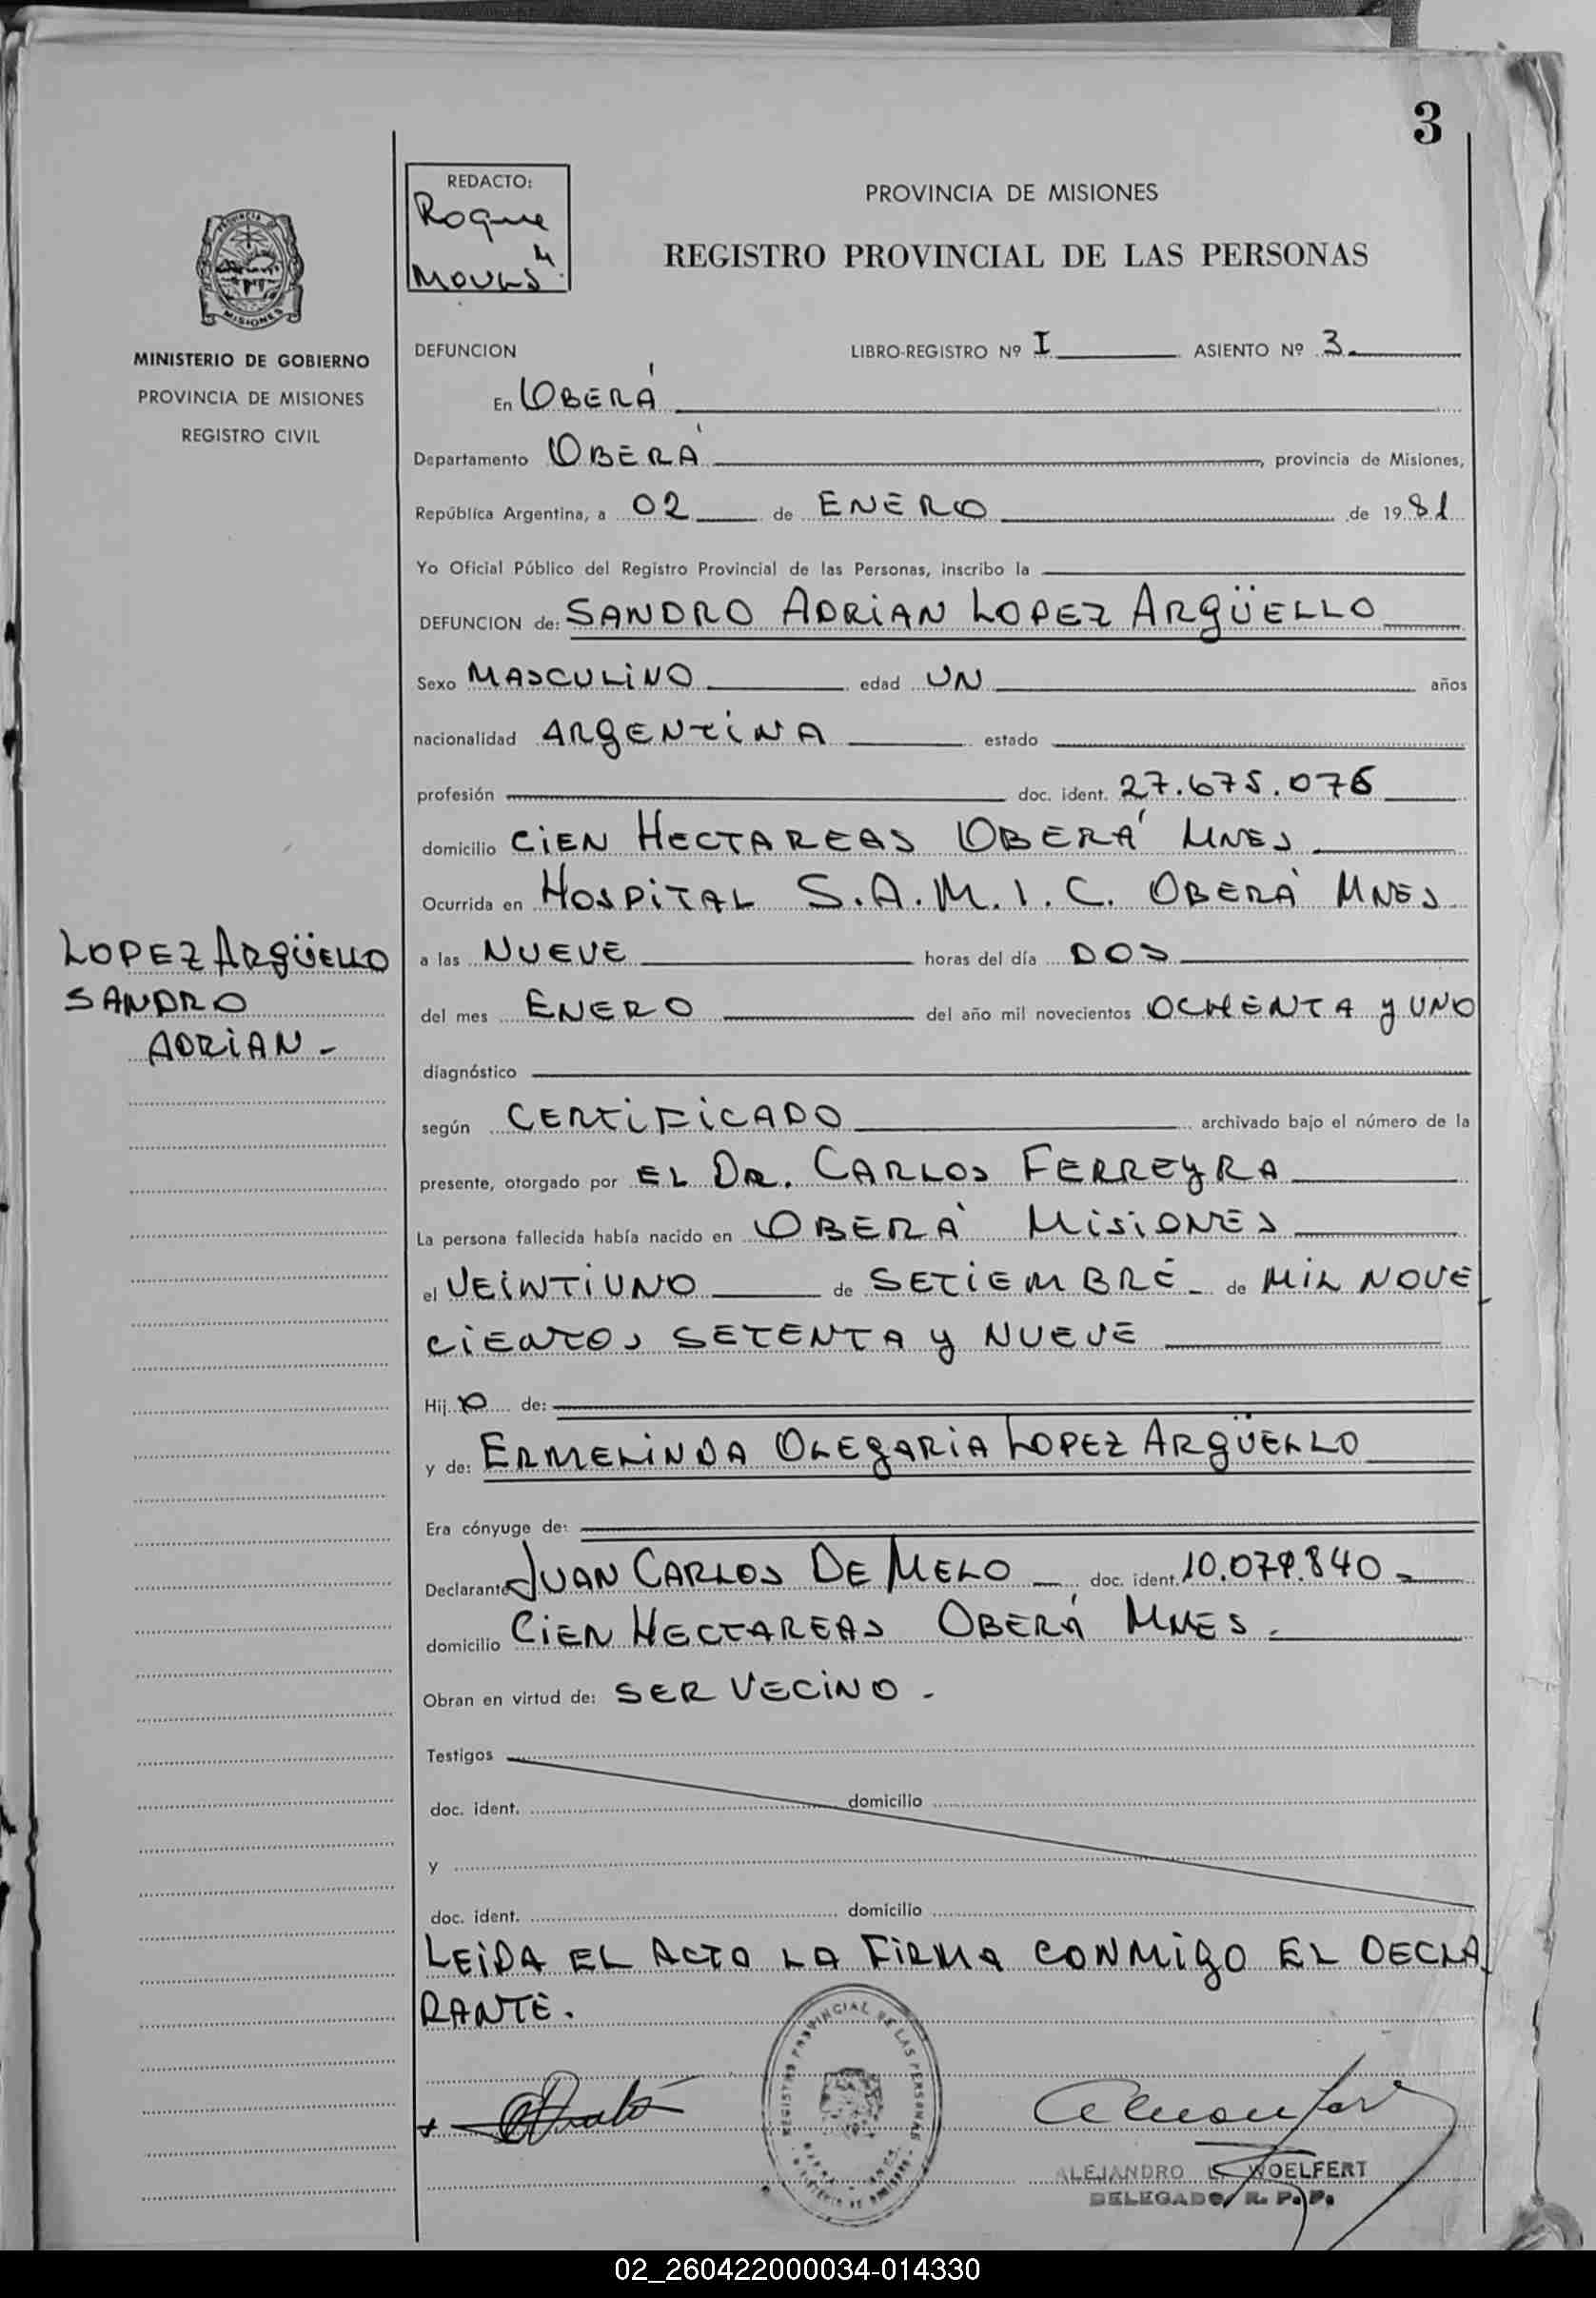 3
REDACTO:
Roque
PROVINCIA DE MISIONES
REGISTRO PROVINCIAL DE LAS PERSONAS
PROVINCIA
MISIONES
MINISTERIO DE GOBIERNO
PROVINCIA DE MISIONES
REGISTRO CIVIL
DEFUNCION LIBRO-REGISTRO Nº I ASIENTO Nº 3
En OBERÁ
Departamento OBERÁ, provincia de Misiones,
República Argentina, a 02 de ENERO de 1981
Yo Oficial Público del Registro Provincial de las Personas, inscribo la
DEFUNCION de: SANDRO ADRIAN LOPEZ ARGÜELLO
Sexo MASCULINO edad UN años
nacionalidad ARGENTINA estado
profesión doc. ident. 27.675.076
domicilio CIEN HECTAREAS OBERÁ MNES
Ocurrida en HOSPITAL S.A.M.I.C. OBERÁ MNES
LOPEZ ARGÜELLO
SANDRO
ADRIAN -
a las NUEVE horas del día DOS
del mes ENERO del año mil novecientos OCHENTA y UNO
diagnóstico
según CERTIFICADO archivado bajo el número de la
presente, otorgado por EL DR. CARLOS FERREYRA
La persona fallecida había nacido en OBERÁ MISIONES
el VEINTIUNO de SETIEMBRE de MIL NOVE
CIENTOS SETENTA y NUEVE
Hij o de:
y de: ERMELINDA OLEGARIA LOPEZ ARGÜELLO
Era cónyuge de:
Declarante JUAN CARLOS DE MELO doc. ident. 10.079.840 -
domicilio CIEN HECTAREAS OBERÁ MNES.
Obran en virtud de: SER VECINO -
Testigos
doc. ident. domicilio
y
doc. ident. domicilio
LEIDA EL ACTO LA FIRMA CONMIGO EL DECLA
RANTE.
REGISTRO PROVINCIAL DE LAS PERSONAS
ALEJANDRO WOELFERT
DELEGADO R. P. P.
02_260422000034-014330